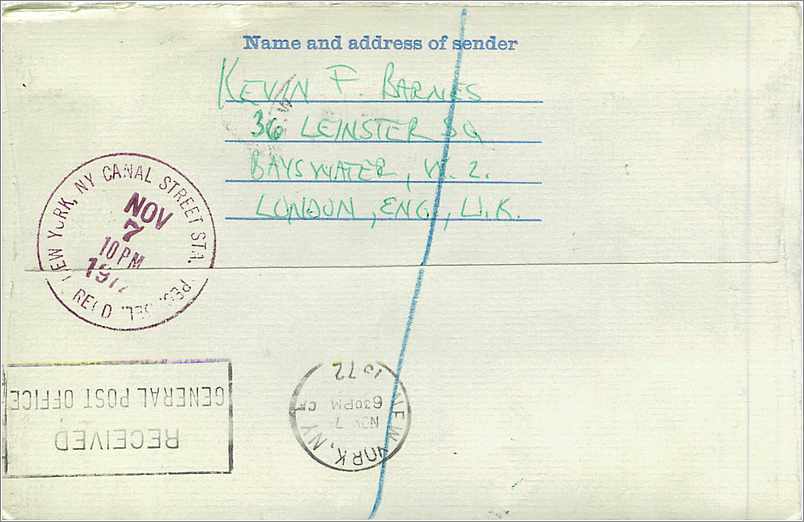 Name and address of sender
KEVIN F. BARNES
36 LEINSTER SQ
BAYSWATER, W. 2.
LONDON, ENG., U.K.
NEW YORK, NY CANAL STREET STA.
NOV
7
10 PM
REC'D.
RECEIVED
GENERAL POST OFFICE
NEW YORK, NY
NOV 7
630PM
1972